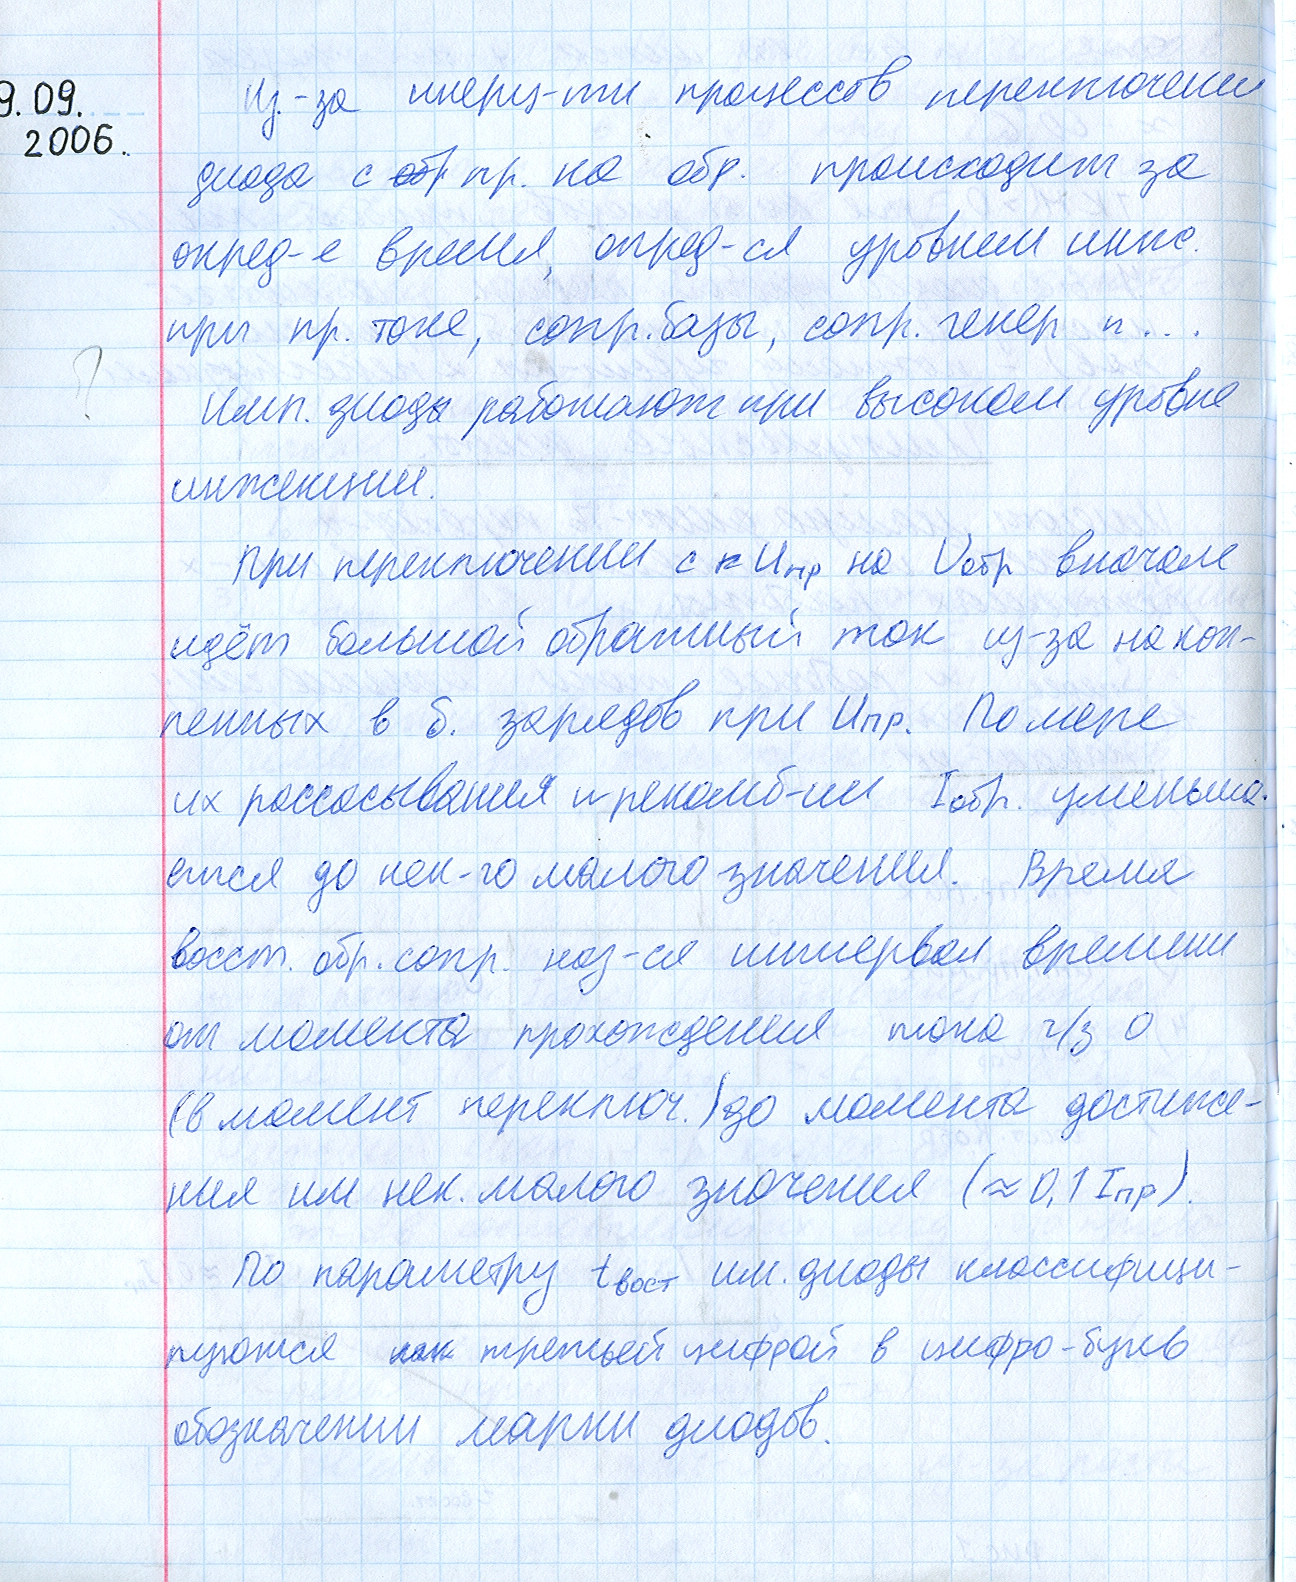 9.09.
2006.
Из-за инерц-ти процессов переключении
диода с обр пр. на обр. происходит за
опред-е время, опред-ся уровнем инж.
при пр. токе, сопр. базы, сопр. генер и ...
?
Имп. диоды работают при высоком уровне
инжекции.
При переключении с Uпр на Uобр вначале
идёт большой обратный ток из-за накоп-
ленных в б. зарядов при Uпр. По мере
их рассасывания и рекомб-ии Iобр. уменьша-
ется до нек-го малого значения. Время
восст. обр. сопр. наз-ся интервал времени
от момента прохождения тока ч/з 0
(в момент переключ.) до момента достиже-
ния им нек. малого значения (≈0,1 Iпр).
По параметру tвост им. диоды классифици-
руются как третьей цифрой в цифро-букв
обозначении марки диодов.